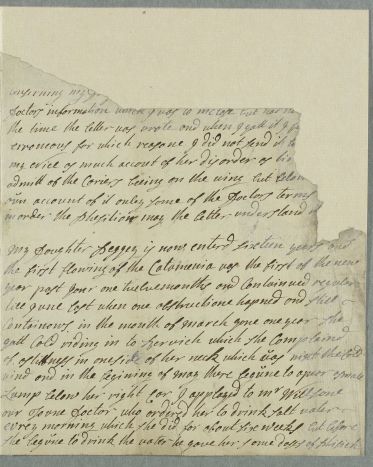 conserning my
doctors information which I was to inclose but not in
the time the letter was wrote and when I gatt it I
erroneous for which reasone I did not send it
my evice of much acount of her disorder as
admitt of the Cariers being on the wing but below
own account of it only some of the doctors terms
in order the phesitions may the better understand it
My Doughter peggey is now enterd sixteen years and
the first flowing of the Catamenia was the first of the new
year past your one twelvemonths and Containued regular
till June last when one obstructione hapned and still
Containows in the month of march gone one year she
gatt Cold riding in to Lerwick which she Complained
of a stiffness in one side of her neck which was nixt the Cold
wind and in the begining of may there begune to apear a small
Lump below her right ear, I applayed to mr Willsone
our Toune Doctor who orderd her to drink salt vater
evrey morning which she did for about six weeks but before
she begune to drink the vater he gave her some doses of phisick